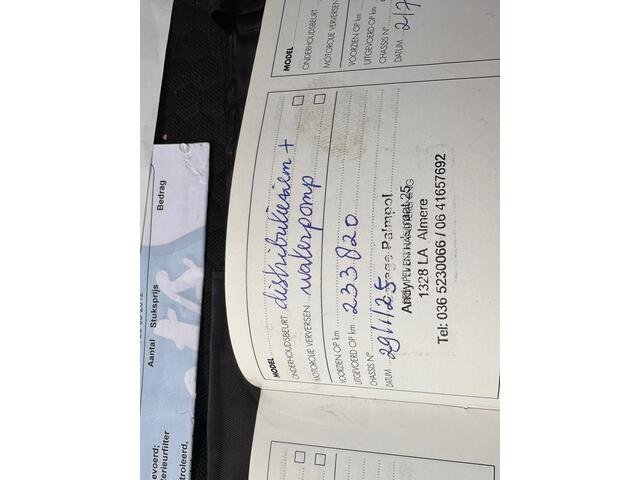 MODEL
ONDERHOUDSBEURT
MOTOROLIE VERVERSEN
VOORZIEN OP km
UITGEVOERD OP km
CHASSIS N°
DATUM 2/7
MODEL
ONDERHOUDSBEURT distributieriem +
MOTOROLIE VERVERSEN waterpomp
VOORZIEN OP km
UITGEVOERD OP km 233820
CHASSIS N°
DATUM 29/1/25
Palmpol
Andy
straat 25
1328 LA Almere
Tel: 036 5230066 / 06 41657692
Aantal Stuksprijs Bedrag
evoerd;
erieurfilter
troleerd,